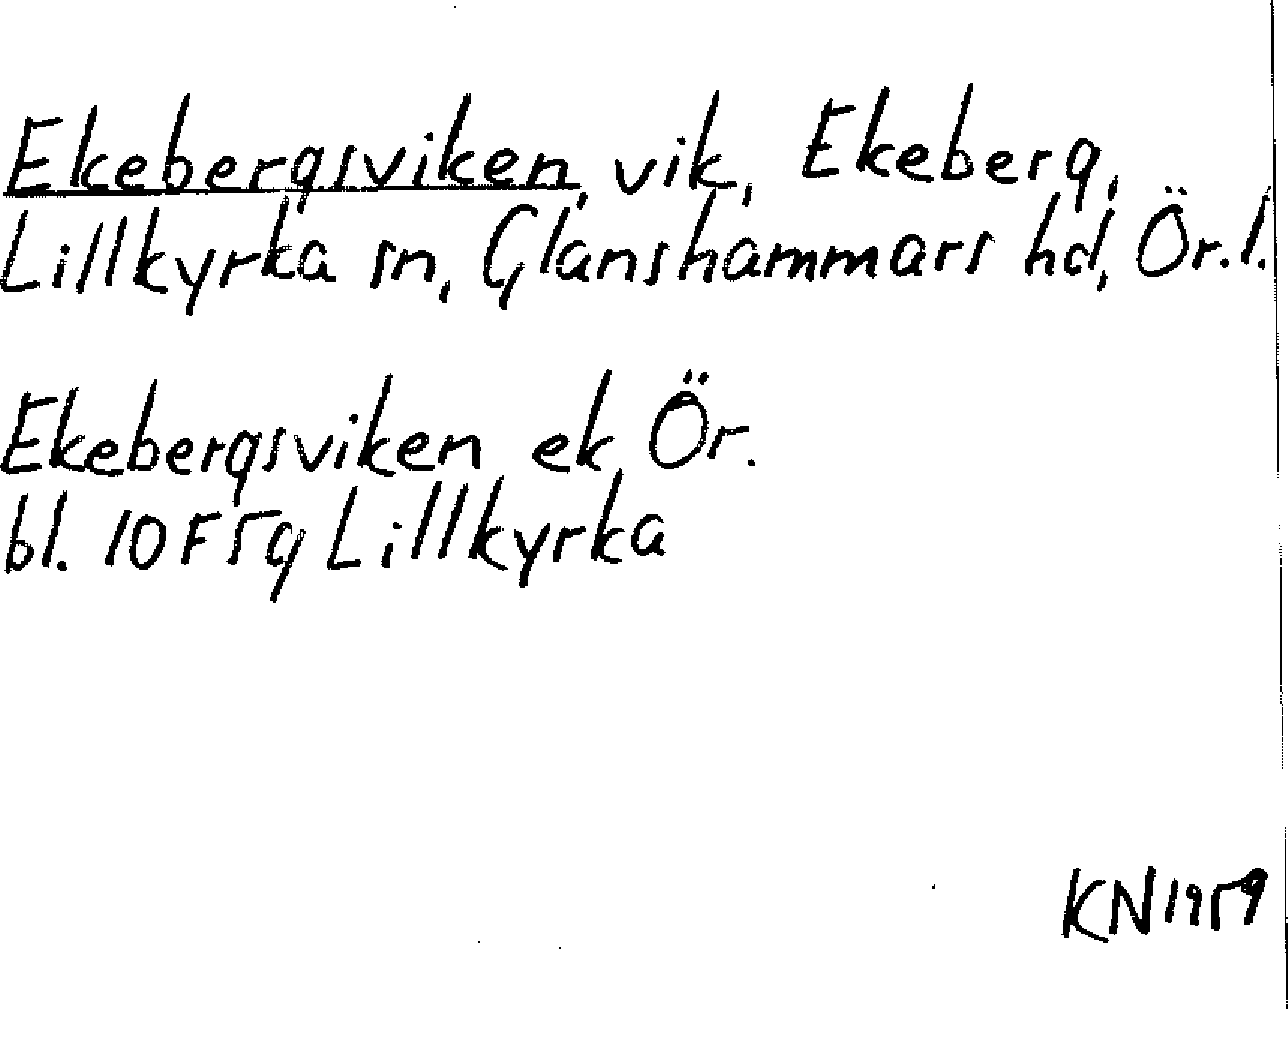 Ekebergsviken, vik, Ekeberg,
Lillkyrka sn, Glanshammars hd, Ör. l.
Ekebergsviken ek Ör.
bl. 10F5g Lillkyrka
KN1959